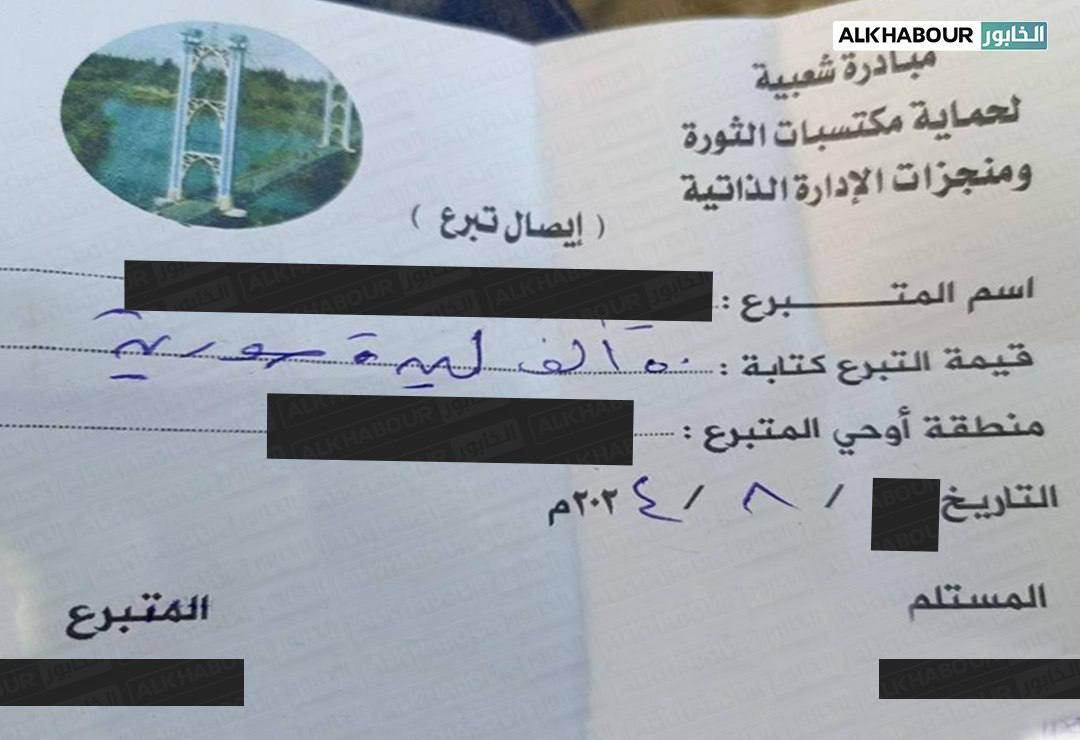 ALKHABOUR الخابور
مبادرة شعبية
لحماية مكتسبات الثورة
ومنجزات الإدارة الذاتية
( إيصال تبرع )
اسم المتـــــــبرع :
قيمة التبرع كتابة : ٥٠ ألف ليرة سورية
منطقة أوحي المتبرع :
التاريخ / ٨ / ٢٠٢٤م
المستلم
المتبرع